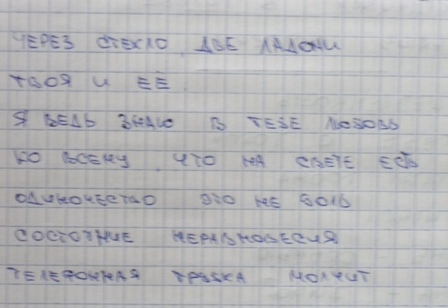 ЧЕРЕЗ СТЕКЛО ДВЕ ЛАДОНИ
ТВОЯ И ЕЁ
Я ВЕДЬ ЗНАЮ В ТЕБЕ ЛЮБОВЬ
КО ВСЕМУ ЧТО НА СВЕТЕ ЕСТЬ
ОДИНОЧЕСТВО ЭТО НЕ БОЛЬ
СОСТОЯНИЕ НЕРАВНОВЕСИЯ
ТЕЛЕФОННАЯ ТРУБКА МОЛЧИТ